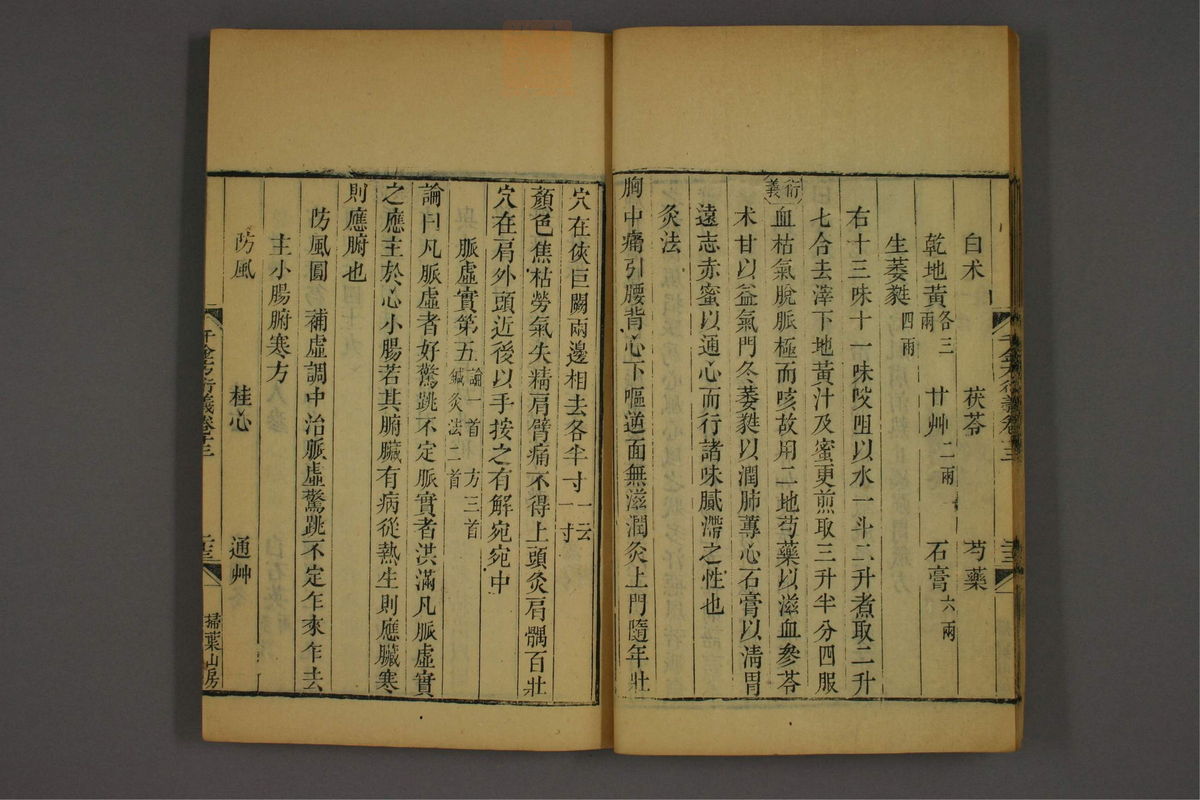 白术 茯苓 芍藥
乾地黃各三兩 甘艸二兩 石膏六兩
生萎蕤四兩
右十三味十一味㕮咀以水一斗二升煮取二升
七合去滓下地黃汁及蜜更煎取三升半分四服
衍義 血枯氣脫脈極而咳故用二地芍藥以滋血參苓
术甘以益氣門冬萎蕤以潤肺蓴心石膏以清胃
遠志赤蜜以通心而行諸味膩滯之性也
灸法
胸中痛引腰背心下嘔逆面無滋潤灸上門隨年壯
穴在俠巨闕兩邊相去各半寸一云一寸
顏色焦枯勞氣失精肩臂痛不得上頭灸肩髃百壯
穴在肩外頭近後以手按之有解宛宛中
脈虛實第五論一首 方三首 鍼灸法二首
論曰凡脈虛者好驚跳不定脈實者洪滿凡脈虛實
之應主於心小腸若其腑臟有病從熱生則應臟寒
則應腑也
防風圓 補虛調中治脈虛驚跳不定乍來乍去
主小腸腑寒方
防風 桂心 通艸
千金方衍義卷十三
掃葉山房